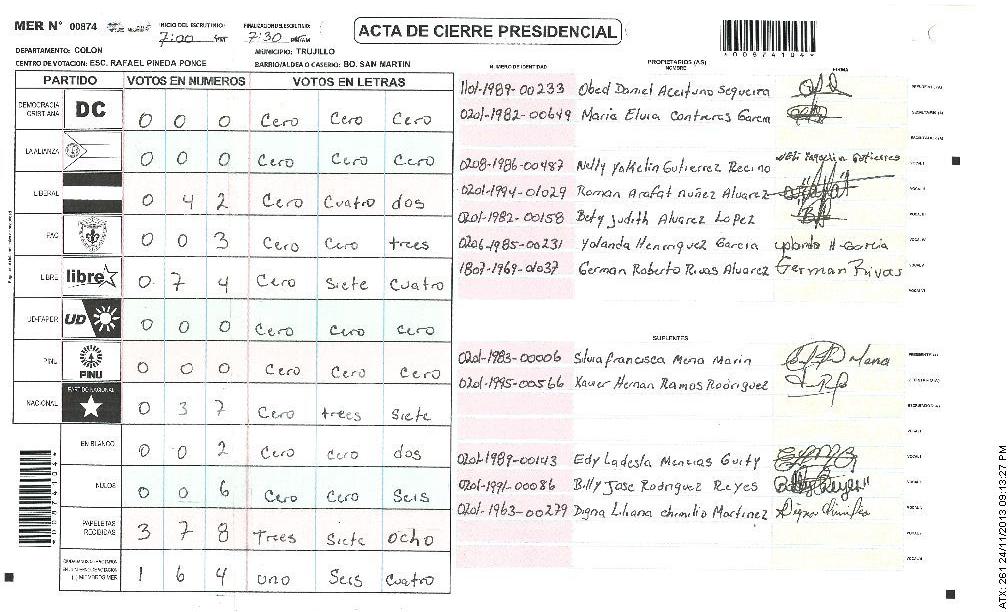 MER N° 00874 INICIO DEL ESCRUTINIO: 7:00 FINALIZACION DEL ESCRUTINIO: 7:30
ACTA DE CIERRE PRESIDENCIAL
*00874104*
DEPARTAMENTO: COLON MUNICIPIO: TRUJILLO
CENTRO DE VOTACION: ESC. RAFAEL PINEDA PONCE BARRIO/ALDEA O CASERIO: BO. SAN MARTIN
PARTIDO VOTOS EN NUMEROS VOTOS EN LETRAS
DEMOCRACIA CRISTIANA DC 0 0 0 Cero Cero Cero
LA ALIANZA 0 0 0 Cero Cero Cero
LIBERAL 0 4 2 Cero Cuatro dos
PAC 0 0 3 Cero Cero trees
LIBRE libre 0 7 4 Cero Siete Cuatro
UD-FAPER UD 0 0 0 Cero Cero Cero
PINU PINU 0 0 0 Cero Cero Cero
NACIONAL PARTIDO NACIONAL 0 3 7 Cero trees Siete
EN BLANCO 0 0 2 Cero Cero dos
NULOS 0 0 6 Cero Cero Seis
PAPELETAS RECIBIDAS 3 7 8 Trees Siete ocho
1 6 4 uno Seis Cuatro
NUMERO DE IDENTIDAD PROPIETARIOS (AS) NOMBRE FIRMA
1101-1989-00233 Obed Daniel Aceituno Sequeira
0201-1982-00649 Maria Elvia Contreras Garcia
0208-1986-00487 Nelly Yakelin Gutierrez Recino
0201-1994-01029 Roman Arafat nuñez Alvarez
0201-1982-00158 Bety Judith Alvarez Lopez
0206-1985-00231 Yolanda Henrriquez Garcia yolanda H Garcia
1807-1969-01037 German Roberto Rivas Alvarez German Rivas
SUPLENTES
0201-1983-00006 Silvia francisca Mena Marin
0201-1995-00566 Xavier Hernan Ramos Rodriguez
0201-1989-00143 Edy Ladesla Mencias Guity
0201-1991-00086 Billy Jose Rodriguez Reyes
0201-1963-00279 Digna Liliana chimilio Martinez
*00874104*
ATX: 261 24/11/2013 09:13:27 PM